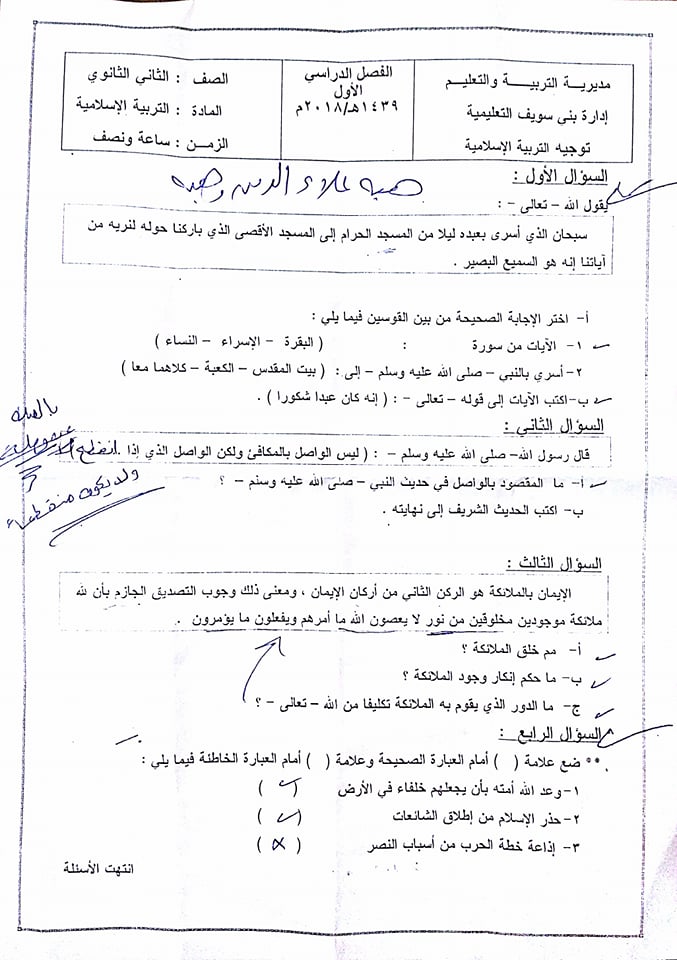 مديرية التربيــــة والتعليـم
إدارة بنى سويف التعليمية
توجيه التربية الإسلامية
الفصل الدراسي
الأول
١٤٣٩هـ/٢٠١٨م
الصف : الثاني الثانوي
المادة : التربية الإسلامية
الزمـن : ساعة ونصف
السؤال الأول :
هبه علاء الدين وهبه
يقول الله – تعالى - :
سبحان الذي أسرى بعبده ليلا من المسجد الحرام إلى المسجد الأقصى الذي باركنا حوله لنريه من
آياتنا إنه هو السميع البصير .
أ- اختر الإجابة الصحيحة من بين القوسين فيما يلي :
١- الآيات من سورة : ( البقرة – الإسراء – النساء )
٢- أسري بالنبي – صلى الله عليه وسلم – إلى : ( بيت المقدس – الكعبة – كلاهما معا )
ب- اكتب الآيات إلى قوله – تعالى - : ( إنه كان عبدا شكورا ) .
السؤال الثاني :
قال رسول الله– صلى الله عليه وسلم – : ( ليس الواصل بالمكافئ ولكن الواصل الذي إذا .
انقطع
ولا يكون منقطعاء
أ- ما المقصود بالواصل في حديث النبي – صلى الله عليه وسلم – ؟
ب- اكتب الحديث الشريف إلى نهايته .
السؤال الثالث :
الإيمان بالملائكة هو الركن الثاني من أركان الإيمان ، ومعنى ذلك وجوب التصديق الجازم بأن لله
ملائكة موجودين مخلوقين من نور لا يعصون الله ما أمرهم ويفعلون ما يؤمرون .
أ- مم خلق الملائكة ؟
ب- ما حكم إنكار وجود الملائكة ؟
ج- ما الدور الذي يقوم به الملائكة تكليفا من الله – تعالى - ؟
السؤال الرابع :
** ضع علامة ( ) أمام العبارة الصحيحة وعلامة ( ) أمام العبارة الخاطئة فيما يلي :
١- وعد الله أمته بأن يجعلهم خلفاء في الأرض ( ✓ )
٢- حذر الإسلام من إطلاق الشائعات ( ✓ )
٣- إذاعة خطة الحرب من أسباب النصر ( × )
انتهت الأسئلة